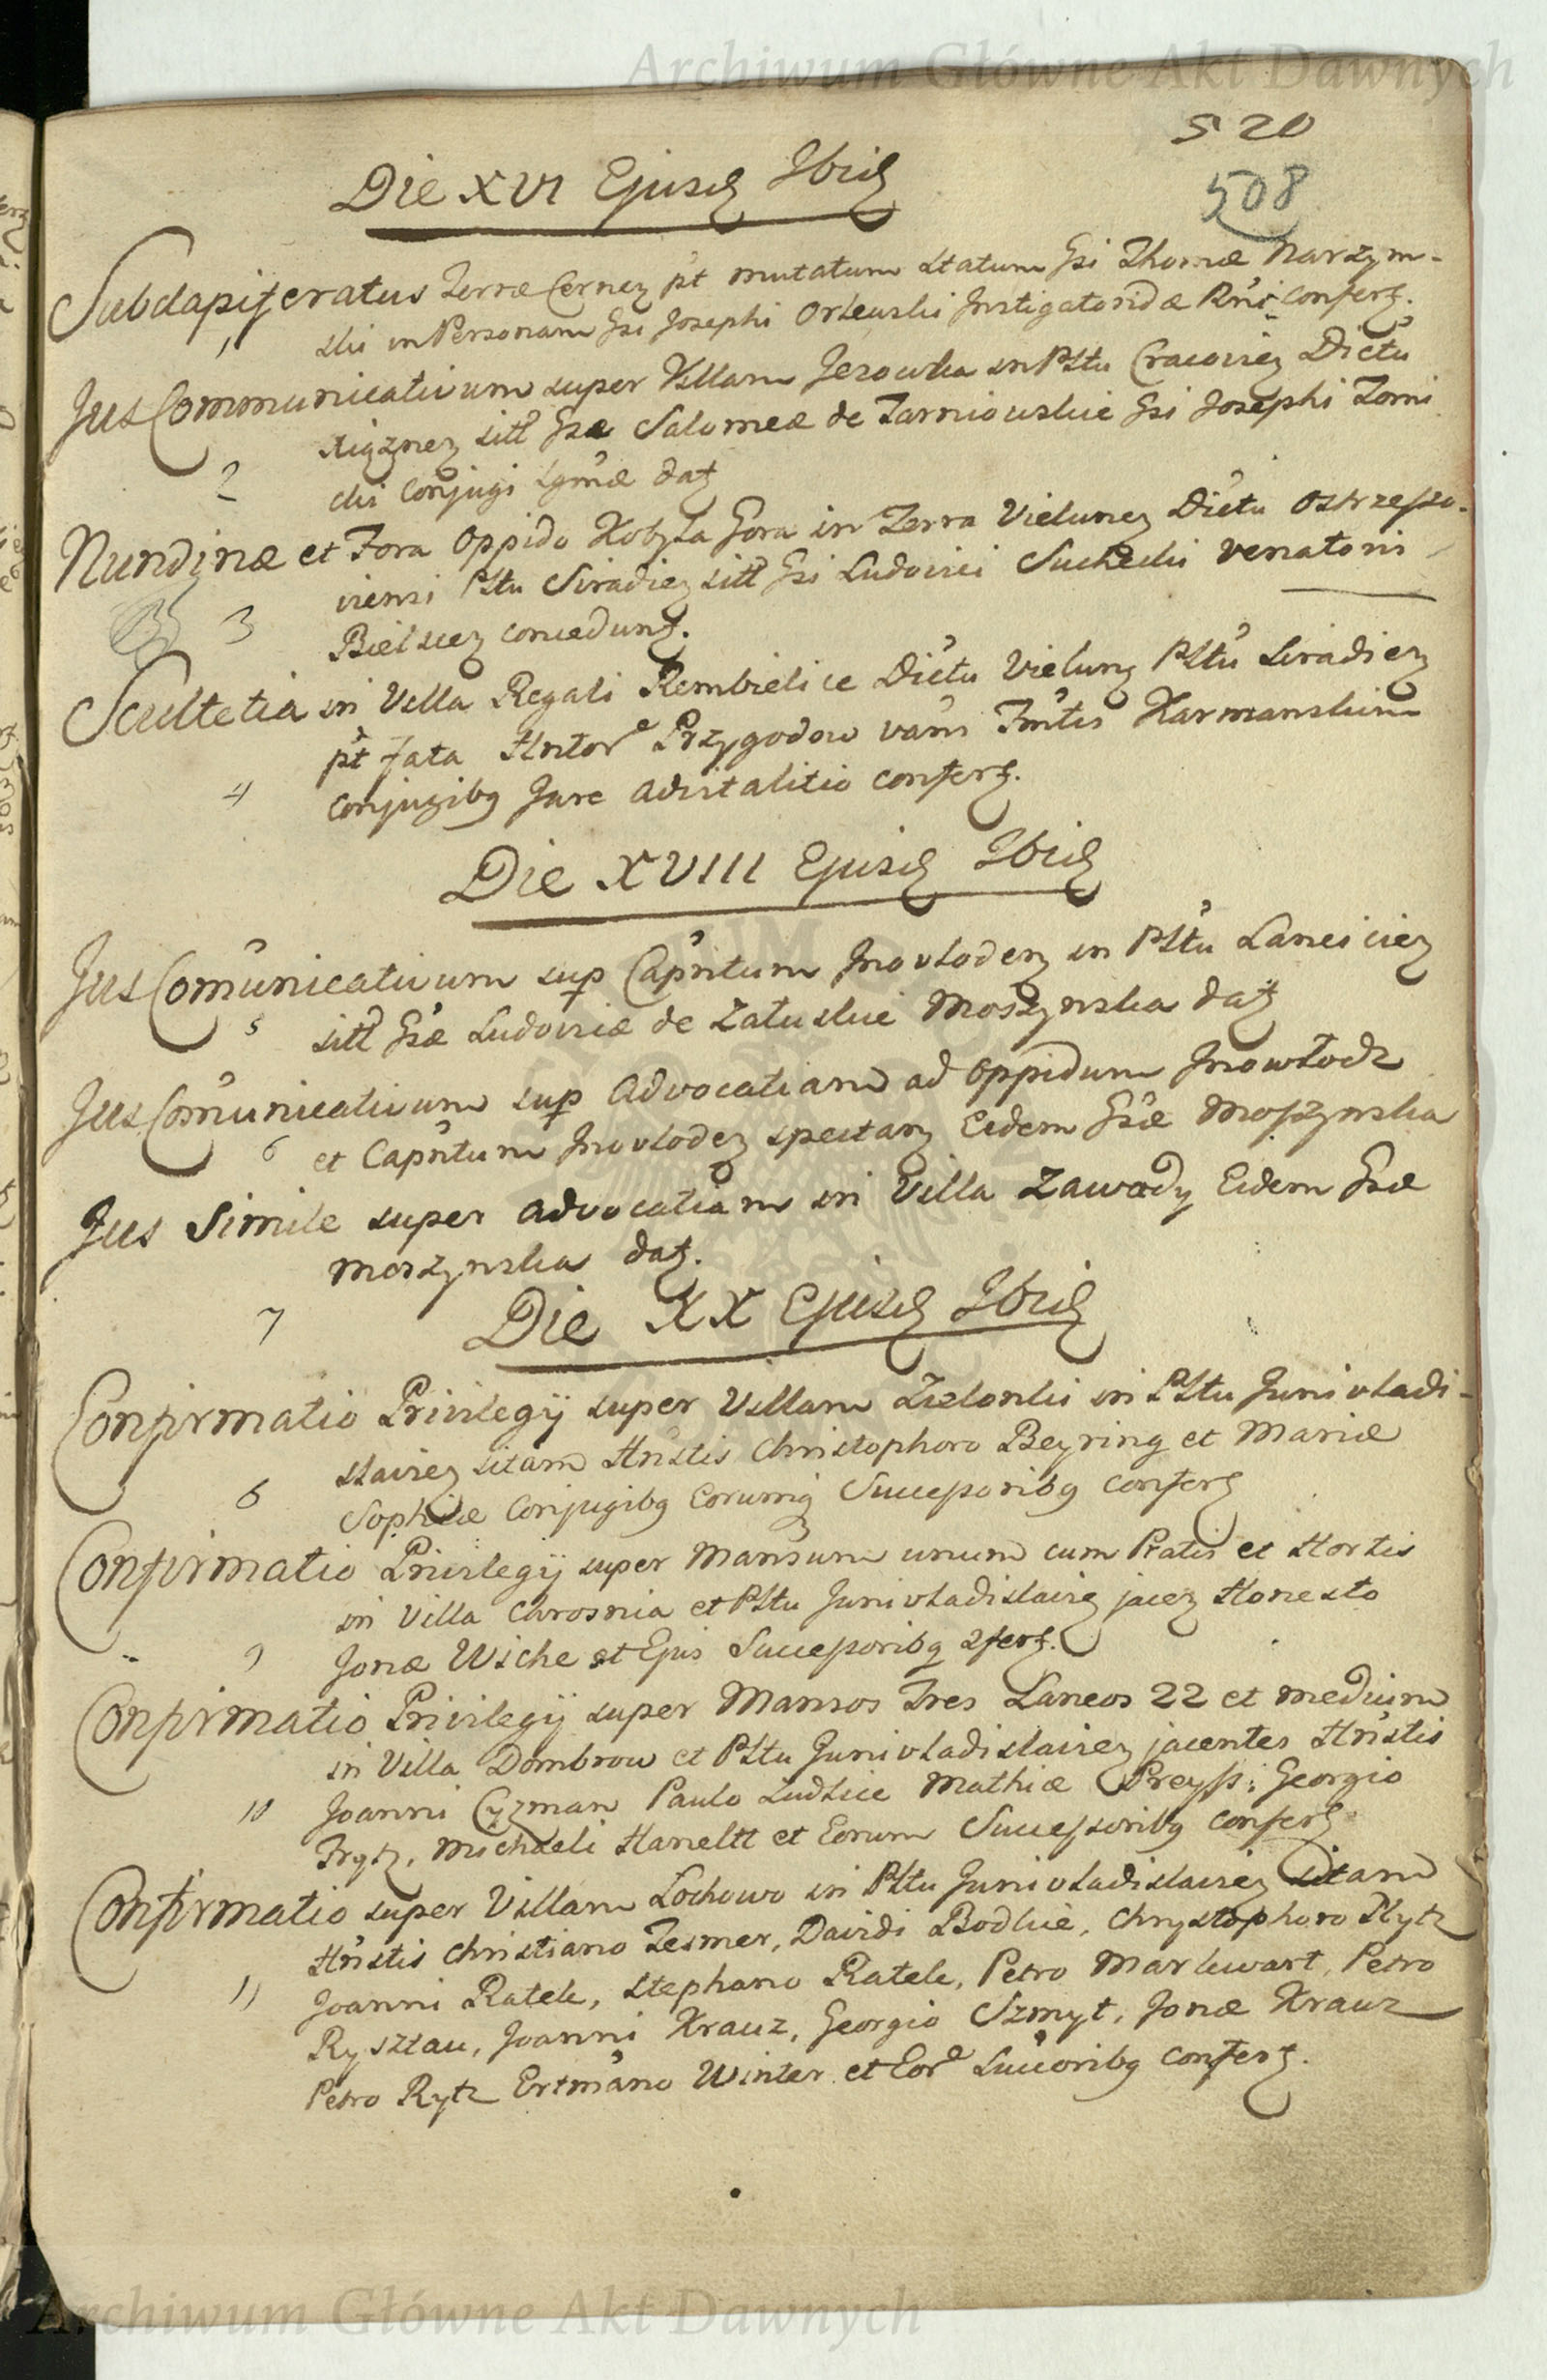 Archiwum Główne Akt Dawnych
520
508
Die XVI Ejusd Ibid
Subdapiferatus Terræ Cernen pt mutatum statum Gsi Thomæ Narzym-
1 ski in Personam Gsi Josephi Orłewski Instigatoridæ Rni confert.
Jus Communicativum super Villam Jerowka in Pltu Cracovien Dictu
Xigznen sitt Gsæ Salomeæ de Tarniowskie Gsi Josephi Zomi
2 cki Conjugi Lgmæ dat
Nundinæ et Fora Oppido Kobyla Gora in Terra Vielunen Dictu Ostrzeszo-
3 viensi Pltu Siradien sitt Gsi Ludovici Suchecki Venatori
Bielscen concedunt.
Scultetia in Villa Regali Rembielice Dictu Vielun Pltu Siradien
pt Fata Antor Przygodow vani Fmtis Karmanskim
4 conjugibq Jure advitalitio confert.
Die XVIII Ejusd Ibid
Jus Comunicativum sup Capntum Inovloden in Pltu Lanciciен
5 sitt Gsæ Ludovicæ de Załuskie Moszynska dat
Jus Comunicativum sup Advocatiam ad Oppidum Inowłodz
6 et Capntum Inovloden spectan Eidem Gsæ Moszynska
Jus Simile super advocatiam in Villa Zawady Eidem Gsæ
Moszynska dat.
7 Die XX Ejusd Ibid
Confirmatio Privilegij super Villam Zielonki in Pltu Junivladi-
8 slavien sitam Hnstis Christophoro Beyring et Mariæ
Sophiæ Conjugibq Eorumq Successoribq confert
Confirmatio Privilegij super Mansum unum cum Pratis et Hortis
in Villa Chrosnia et Pltu Junivladislavien jacen Honesto
9 Jonæ Wiche et Ejus Successoribq 2fert.
Confirmatio Privilegij super Mansos Tres Laneos 22 et medium
in Villa Dombrow et Pltu Junivladislavien jacentes Hnstis
10 Joanni Cyzman Paulo Ludtke Mathiæ Preyss; Georgio
Frytz, Michaeli Haneltt et Eorum Successoribq confert
Confirmatio super Villam Lochowo in Pltu Junivladislavien sitam
Hnstis Christiano Tesmer, Davidi Bodkie, Chrystophoro Rytz
11 Joanni Ratek, Stephano Ratek, Petro Markwart, Petro
Rysztau, Joanni Krauz, Georgio Szmyt, Jonæ Krauz
Petro Rytz Ertmano Winter et Eor Succoribq confert.
Archiwum Główne Akt Dawnych